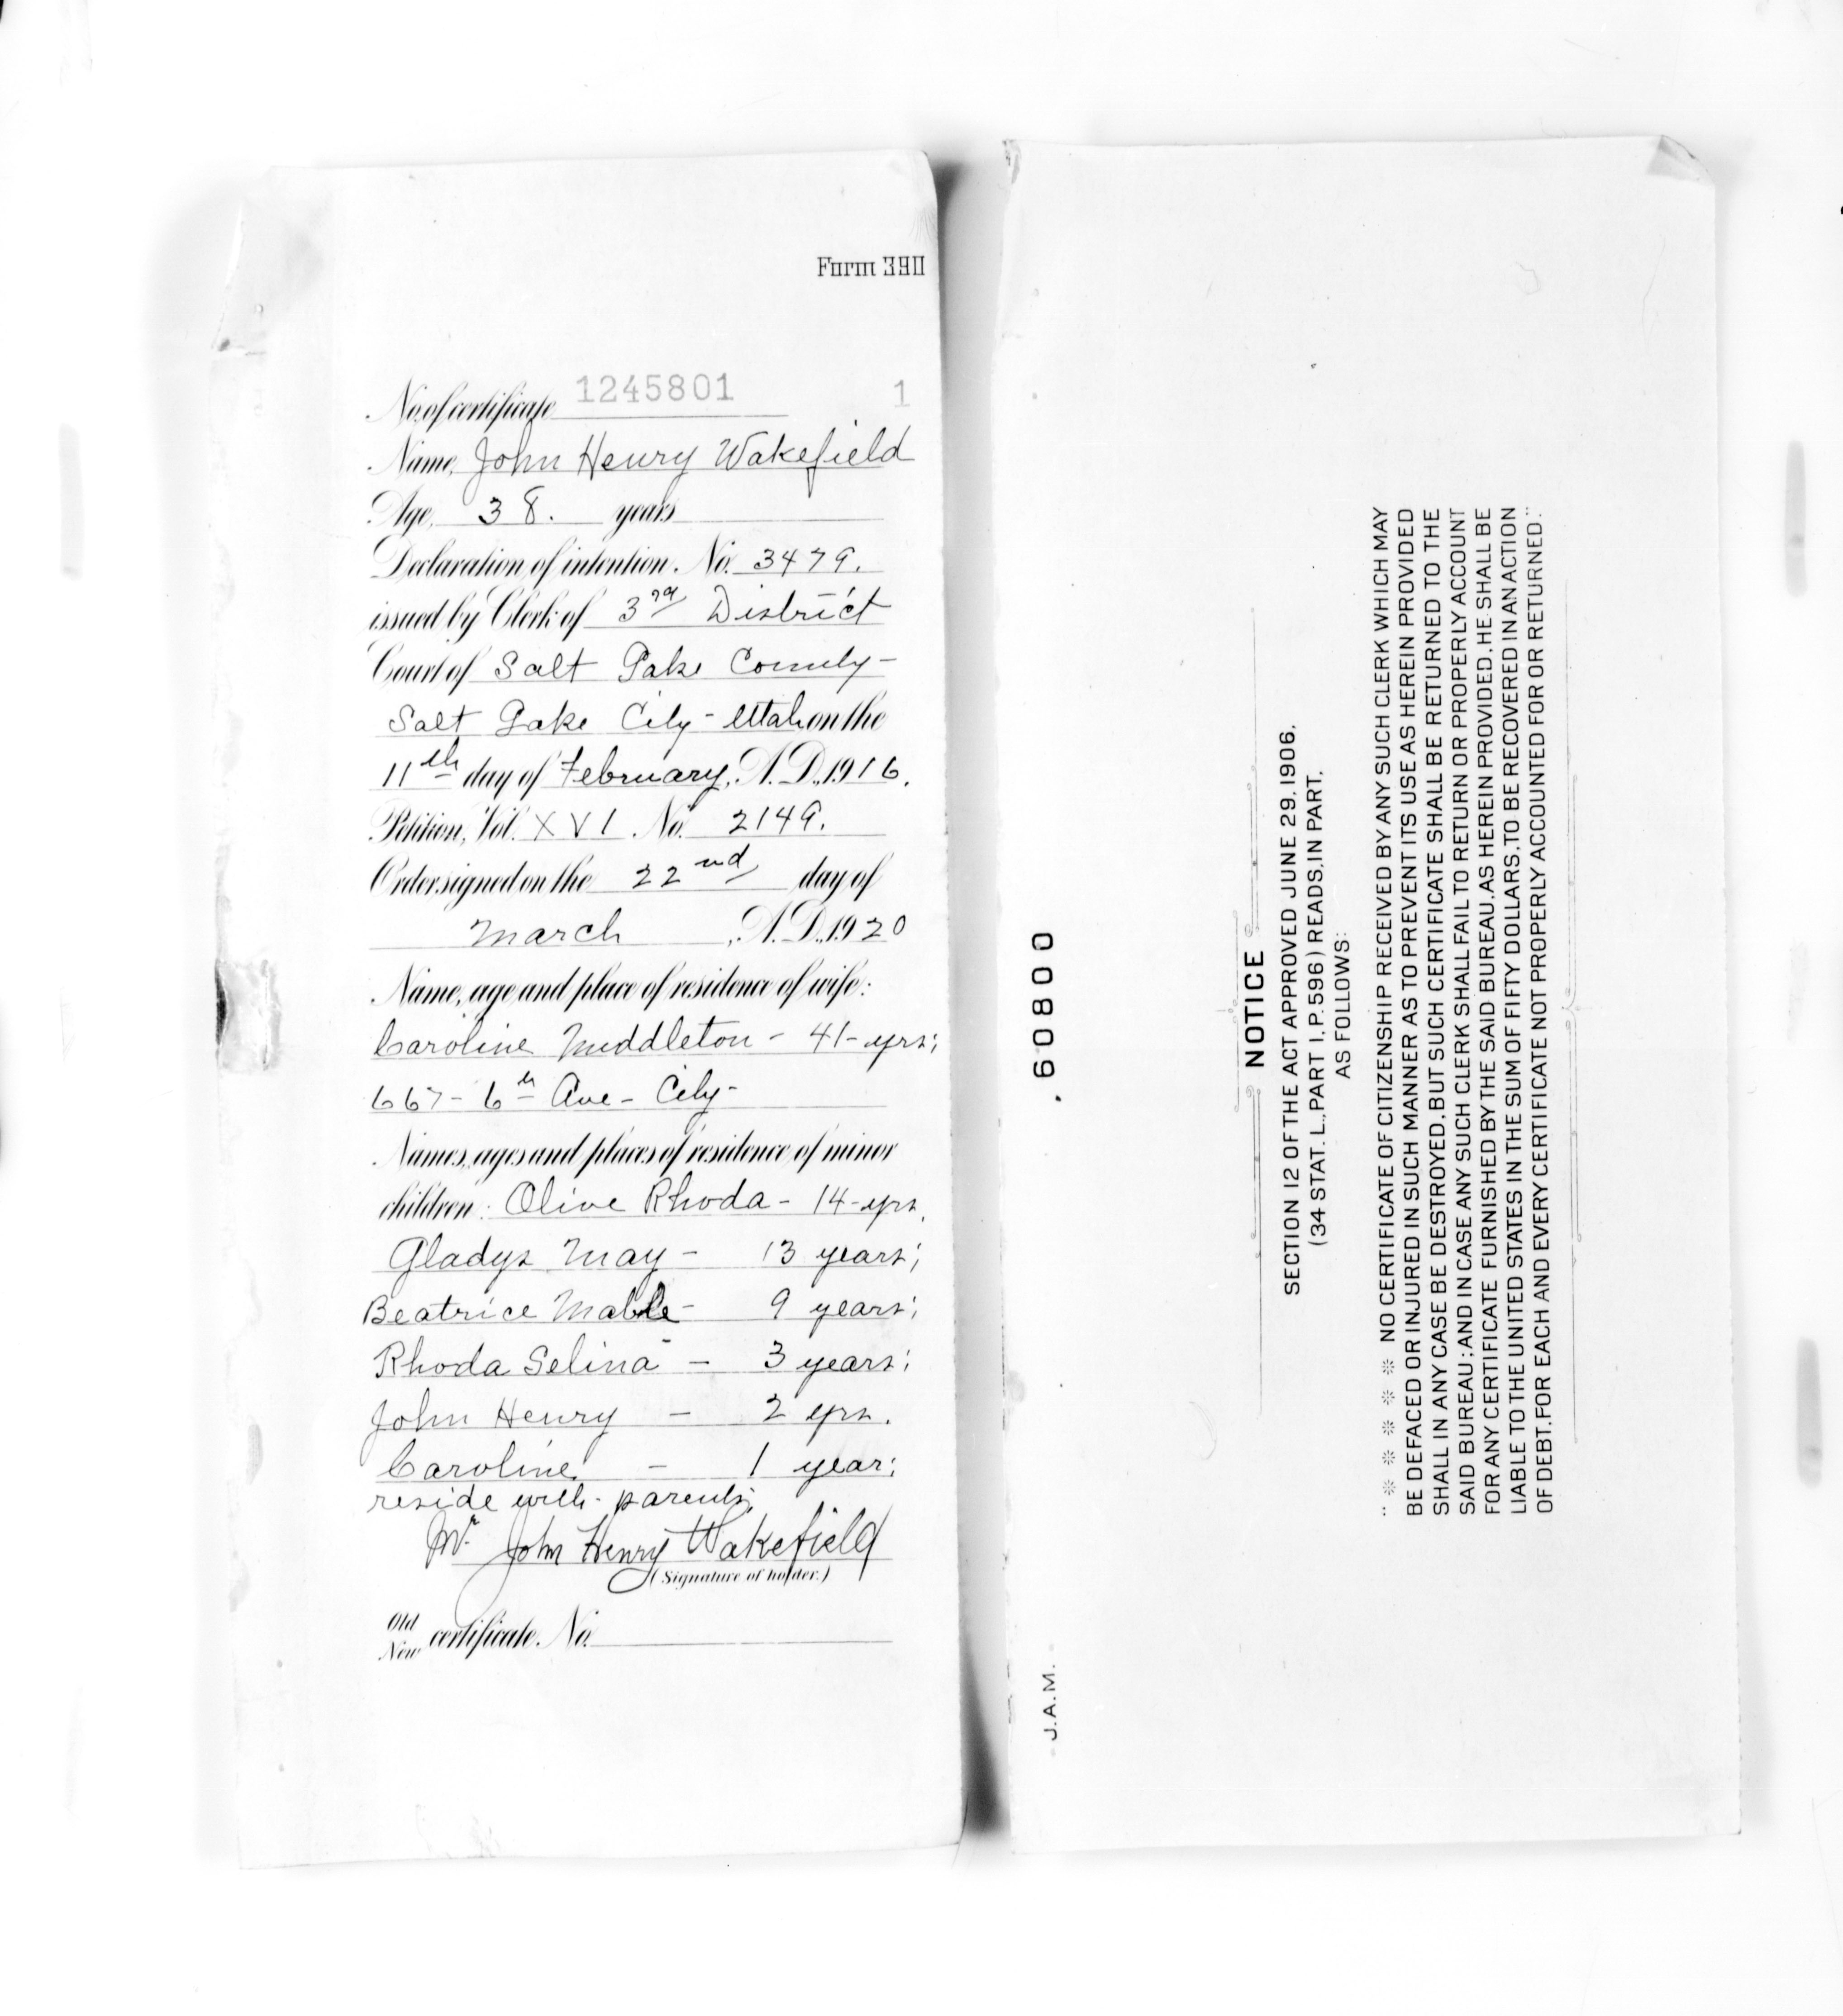 Form 390
No. of certificate 1245801 1
Name, John Henry Wakefield
Age, 38. years
Declaration of intention, No. 3479.
issued by Clerk of 3rd District
Court of Salt Lake County-
Salt Lake City - Utah on the
11th day of February, A.D., 1916.
Petition, Vol. XVI No. 2149.
Order signed on the 22nd day of
March, A.D., 1920
Name, age and place of residence of wife:
Caroline Middleton - 41-yrs;
667- 6th Ave - City-
Names, ages and places of residence of minor
children: Olive Rhoda - 14-yrs.
Gladys May - 13 years;
Beatrice Mable - 9 years;
Rhoda Selina - 3 years;
John Henry - 2 yrs.
Caroline - 1 year;
reside with parents;
Mr. John Henry Wakefield
(Signature of holder.)
Old
New certificate, No.
60800
J.A.M.
NOTICE
SECTION 12 OF THE ACT APPROVED JUNE 29, 1906,
(34 STAT. L., PART I, P. 596) READS, IN PART,
AS FOLLOWS:
"* * * * * * NO CERTIFICATE OF CITIZENSHIP RECEIVED BY ANY SUCH CLERK WHICH MAY
BE DEFACED OR INJURED IN SUCH MANNER AS TO PREVENT ITS USE AS HEREIN PROVIDED
SHALL IN ANY CASE BE DESTROYED, BUT SUCH CERTIFICATE SHALL BE RETURNED TO THE
SAID BUREAU; AND IN CASE ANY SUCH CLERK SHALL FAIL TO RETURN OR PROPERLY ACCOUNT
FOR ANY CERTIFICATE FURNISHED BY THE SAID BUREAU, AS HEREIN PROVIDED, HE SHALL BE
LIABLE TO THE UNITED STATES IN THE SUM OF FIFTY DOLLARS, TO BE RECOVERED IN AN ACTION
OF DEBT, FOR EACH AND EVERY CERTIFICATE NOT PROPERLY ACCOUNTED FOR OR RETURNED."